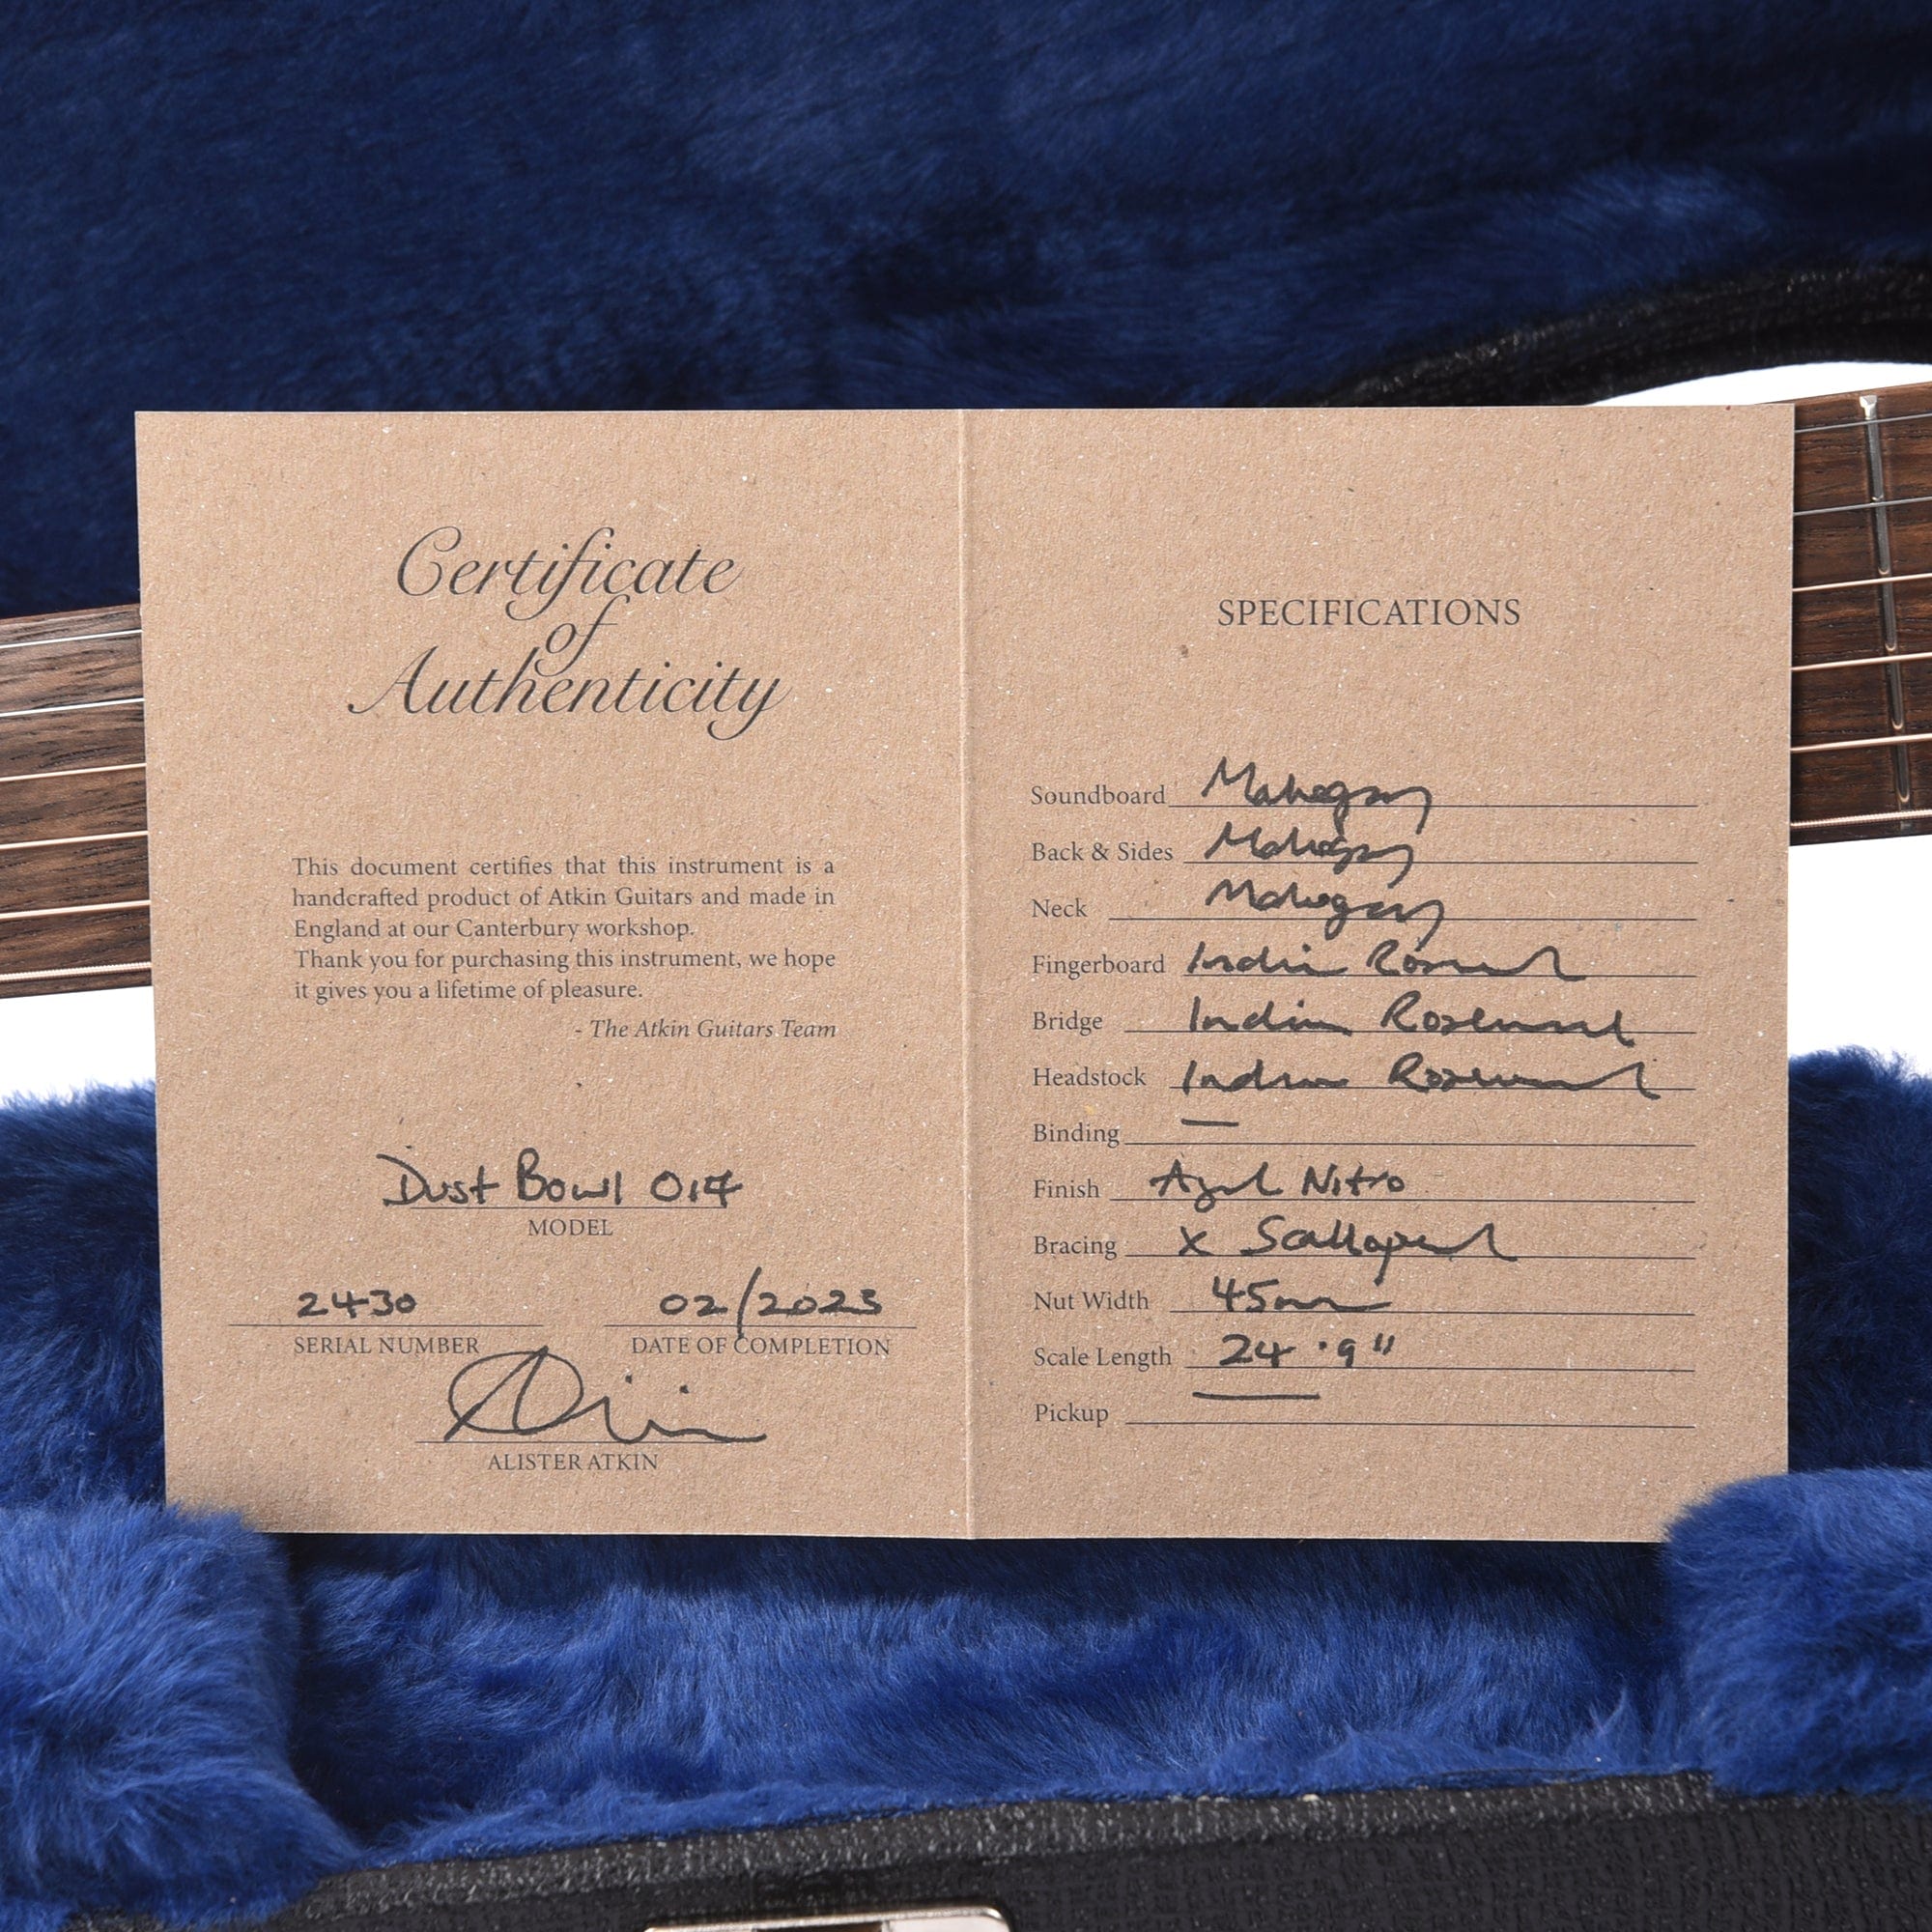 Certificate
of
Authenticity
This document certifies that this instrument is a
handcrafted product of Atkin Guitars and made in
England at our Canterbury workshop.
Thank you for purchasing this instrument, we hope
it gives you a lifetime of pleasure.
- The Atkin Guitars Team
Dust Bowl 014
MODEL
2430
SERIAL NUMBER
02/2023
DATE OF COMPLETION
ALISTER ATKIN
SPECIFICATIONS
Soundboard Mahogany
Back & Sides Mahogany
Neck Mahogany
Fingerboard Indian Rosewood
Bridge Indian Rosewood
Headstock Indian Rosewood
Binding —
Finish Aged Nitro
Bracing X Scalloped
Nut Width 45mm
Scale Length 24.9"
Pickup —